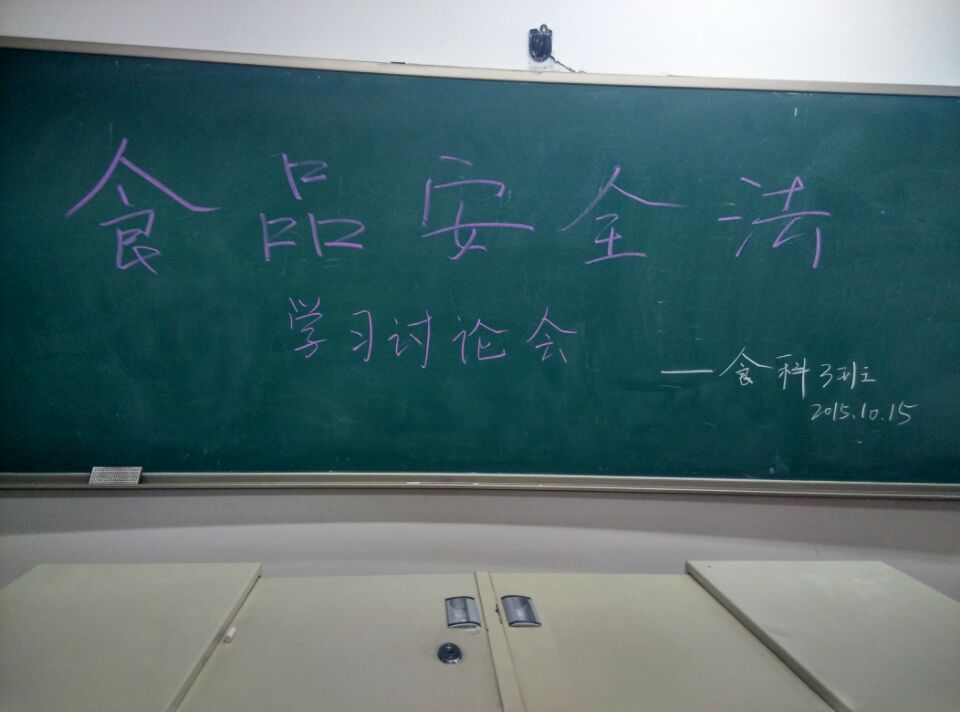 食品安全法
学习讨论会
—食科3班
2015.10.15